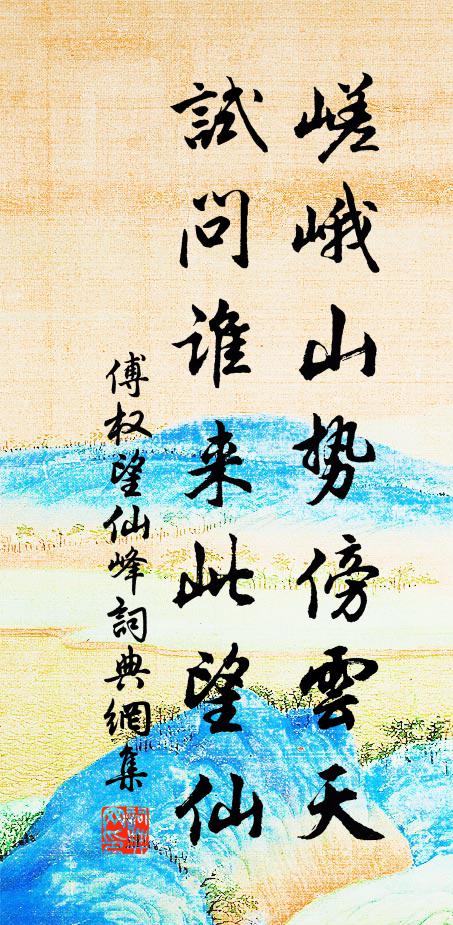 嵯峨山势傍雲天
試问谁来此望仙
傅权望仙峰詞典網集